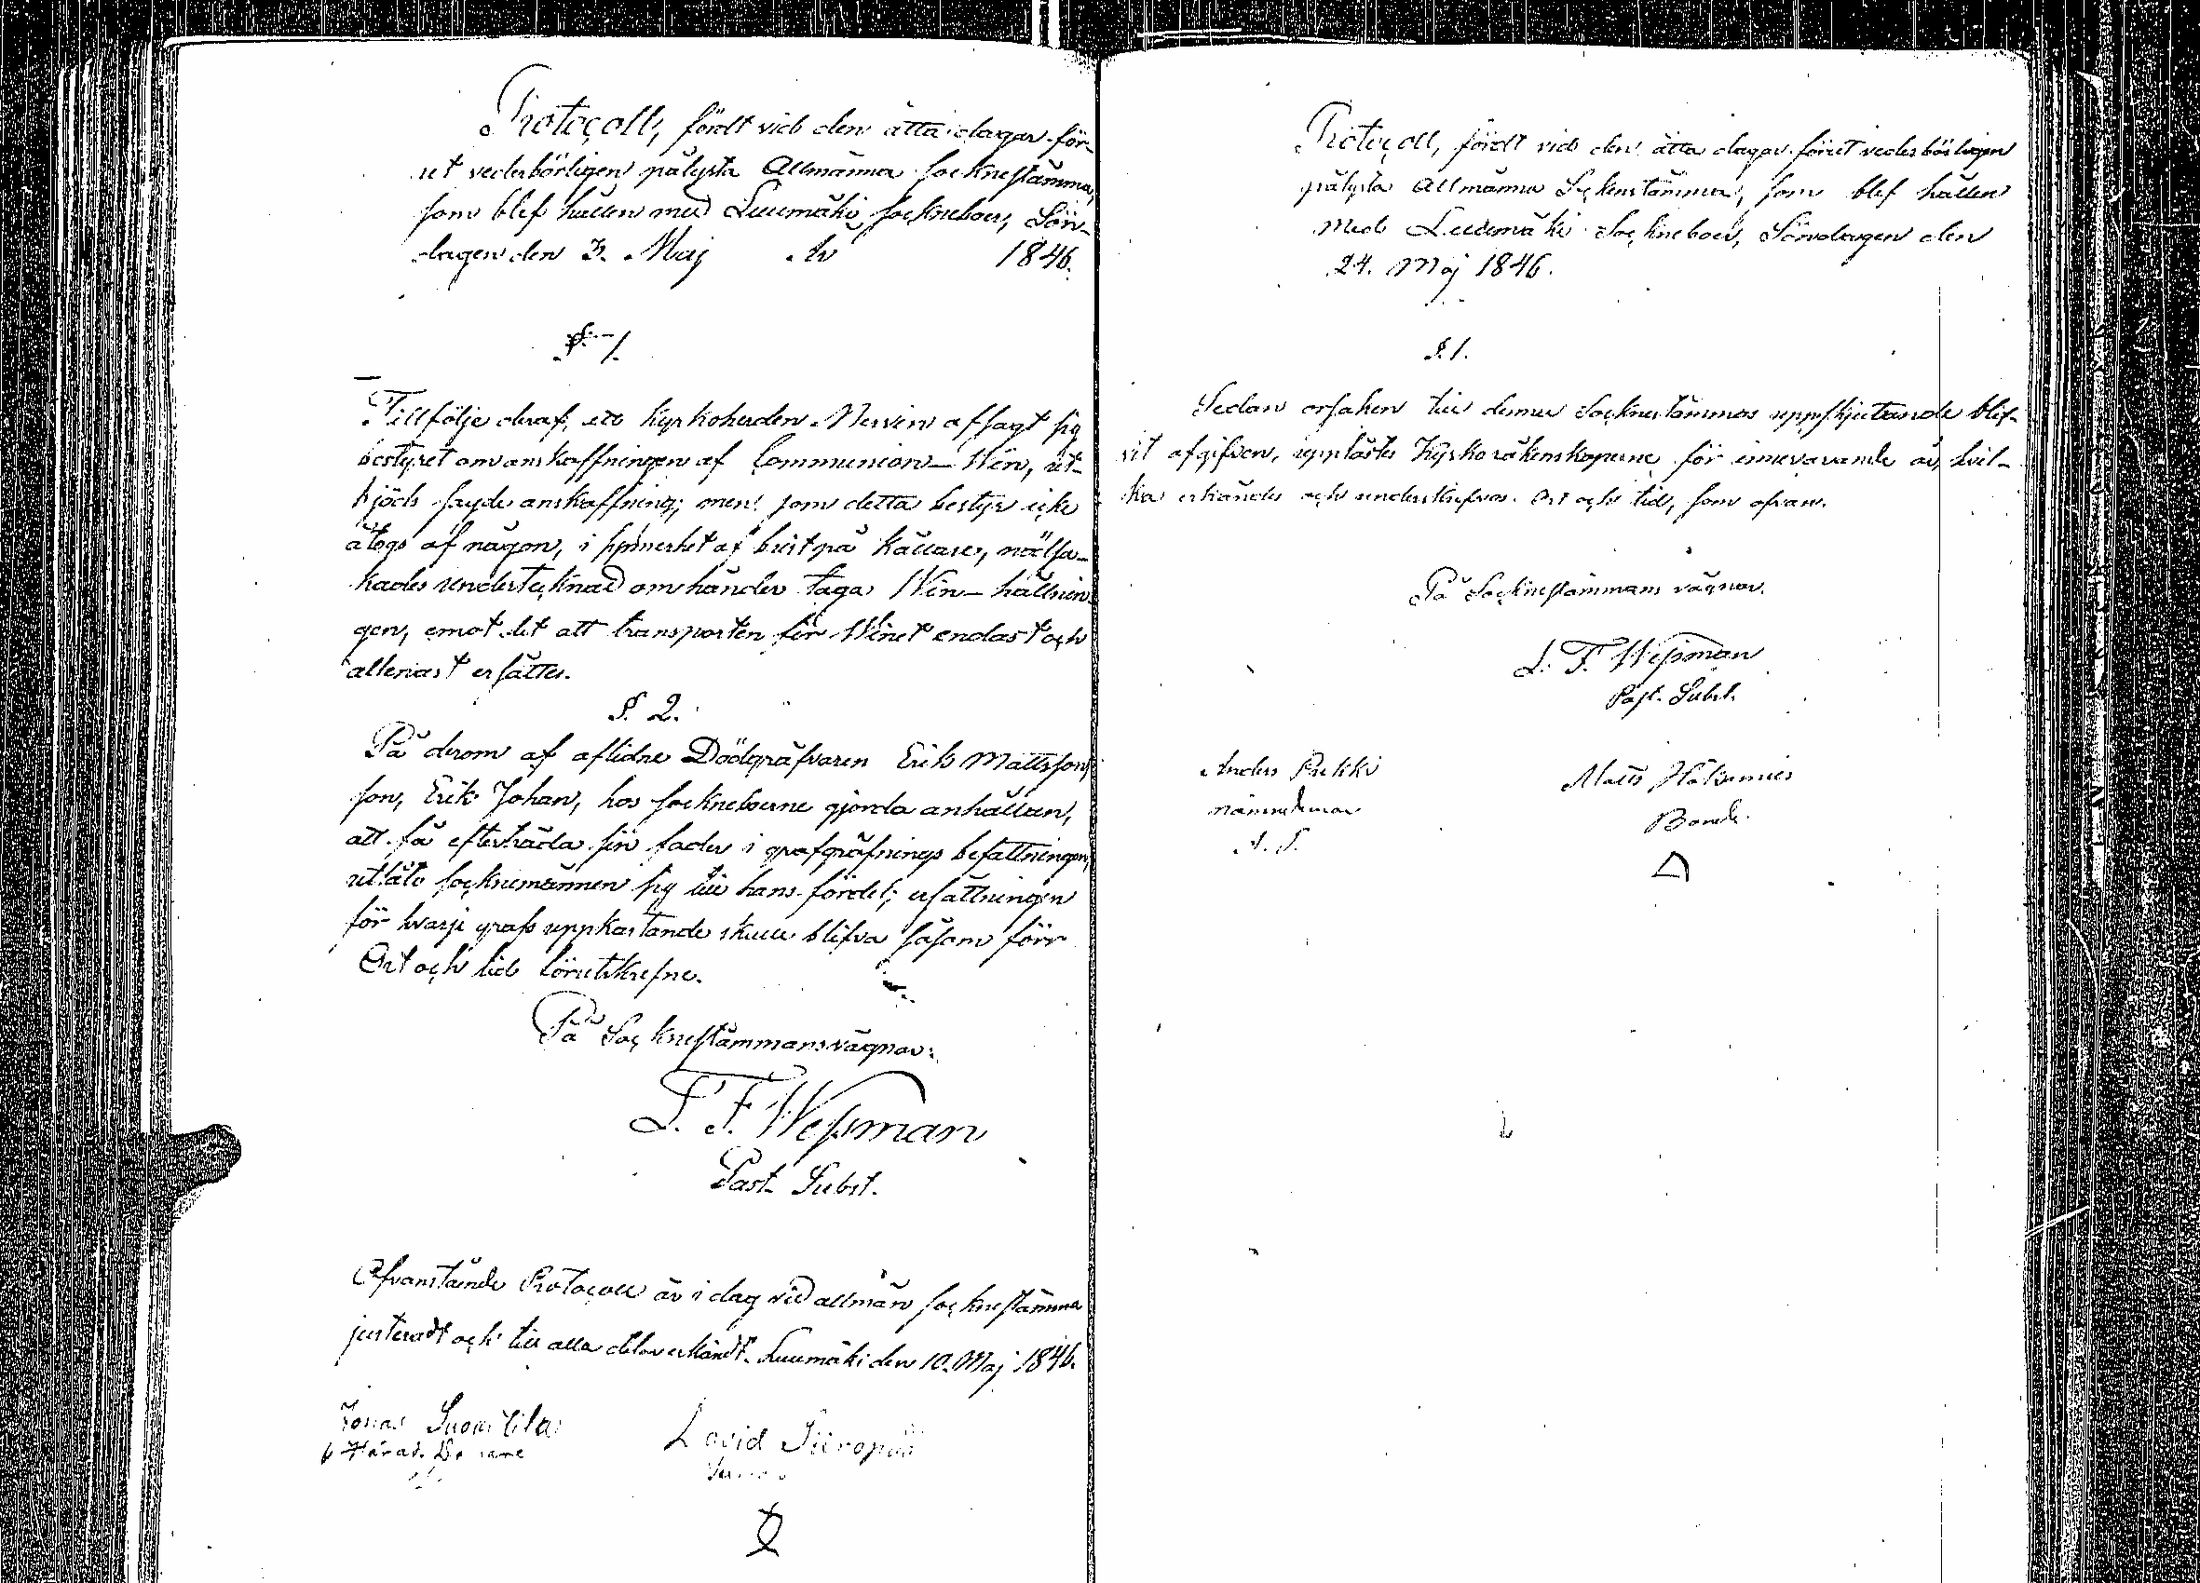 Protocoll, fördt vid den åtta dagar för-
ut vederbörligen pålysta Allmänna Sockneftämma,
som blef hållen med Luumäki Socknebor, Sön-
dagen den 3. Maj År 1846.
§ 1.
Tillfölje deraf, att Kyrkoherden Nervin afsagt sig
bestyret om anskaffningen af Communion-Win, ut-
bjöds sagde anskaffning; men som detta bestyr icke
åtogs af någon, i synnerhet af brist på källare, nödsa-
kades undertecknad om händer taga Win-hållnin-
gen, emot det att transporten för Winet endast och
allenast ersättes.
§. 2.
På derom af aflidne Dödgräfvaren Erik Mattsson
son, Erik Johan, hos sockneboerne gjorda anhållan,
att få efterträda sin fader i grafgräfnings befattningen,
utläto socknemännen sig till hans fördel; ersättningen
för hvarje grafs uppkastande skulle blifva såsom förr
Ort och tid förutskrefne.
På Socknestämmans vägnar:
L. F. Wessman
Past. Subst.
Ofvanstående Protocoll är i dag vid allmän socknestämma
justeradt och till alla delar erkändt. Luumäki den 10. Maj 1846.
Jonas Suontila
Härads Do
David
Protocoll, fördt vid den åtta dagar förut vederbörligen
pålysta Allmänna Socknestämma, som blef hållen
med Luumäki Socknebor, Söndagen den
24. Maj 1846.
§. 1.
Sedan orsaken till denna Socknestämmas uppskjutande blif-
vit afgifven, upplästes Kyrkoräkenskaperne för innevarande år, hvil-
ka erkändes och underskrefvos. Ort och tid, som ofvan.
På Socknestämmans vägnar.
L. F. Wessman
Past. Subst.
Anders Pukki
nämndeman
Matts
Bonde